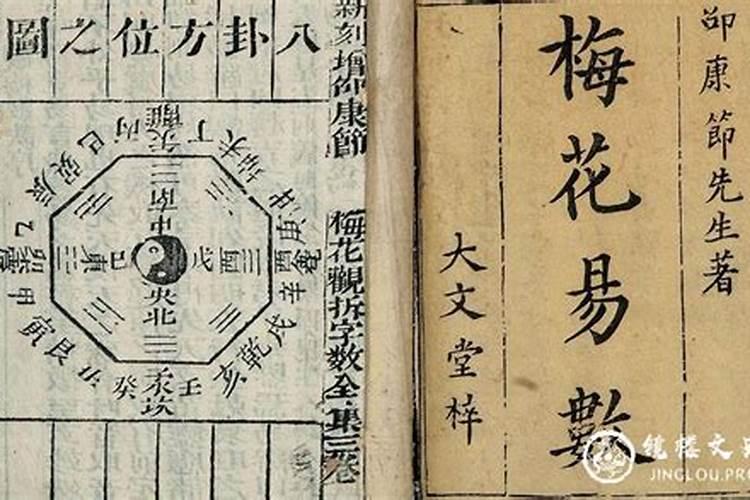 卲康節先生著
梅花易數
大文堂梓
新刻增卲康節
梅花觀拆字數全集三卷
八卦方位之圖
丙 午離 丁 未 坤 申 庚 酉兌 辛 戌 乾 亥 壬 子坎 癸 丑 艮 寅 甲 卯震 乙 辰 巽 巳
南
中
東 己 戊 西
央
北
镜楼文
JINGLOU.PR